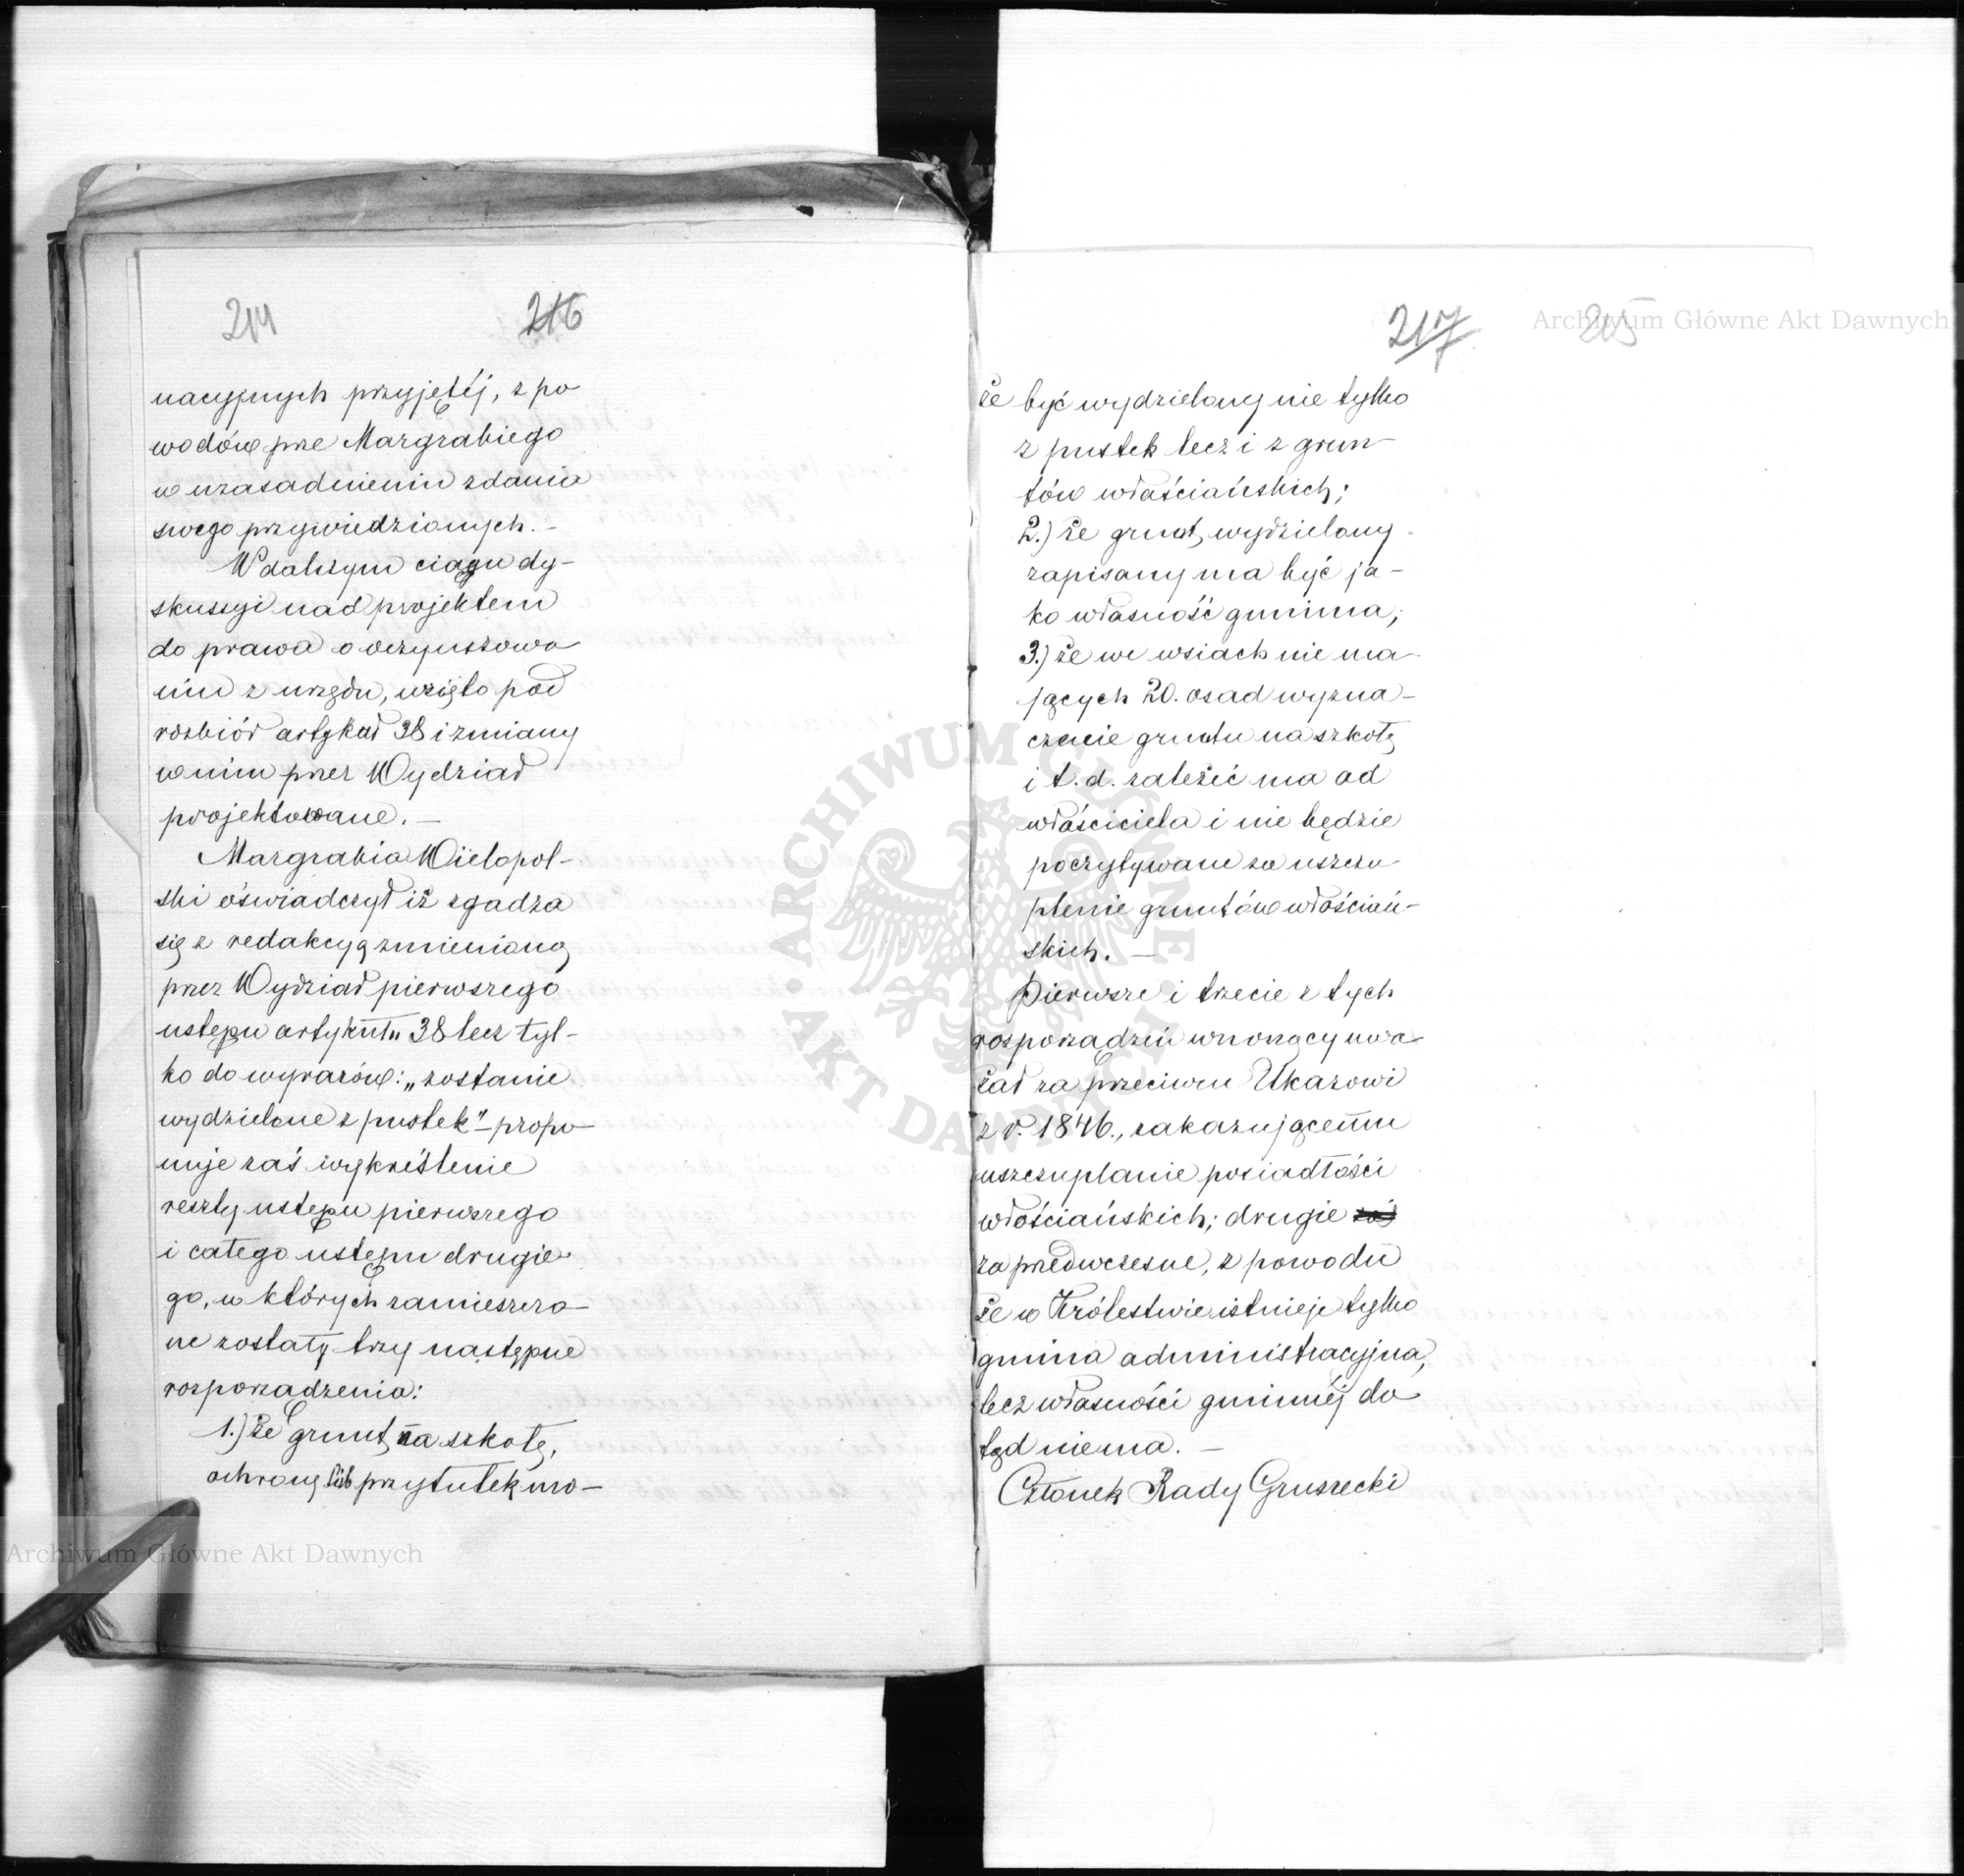 214 216
nacyjnych przyjętéj, z po
wodów prze Margrabiego
w uzasadnieniu zdania
swego przywiedzionych. —
W dalszym ciągu dy-
skussyi nad projektem
do prawa o oczynszowa
niu z urzędu, wzięto pod
rozbiór artykuł 38 i zmiany
w nim przez Wydział
projektowane. —
Margrabia Wielopol-
ski oświadczył iż zgadza
się z redakcyą zmienioną
przez Wydział pierwszego
ustępu artykułu 38 lecz tyl-
ko do wyrazów: „zostanie
wydzielone z pustek" — propo-
nuje zaś wykreślenie
reszty ustępu pierwszego
i całego ustępu drugie-
go, w których zamieszczo-
ne zostały trzy następne
rozporządzenia:
1.) że grunt na szkołę,
ochronę lub przytułek mo-
217 215
że być wydzielony nie tylko
z pustek lecz i z grun-
tów właściańskich;
2.) że grunt, wydzielony
zapisany ma być ja-
ko własność gminna;
3.) że we wsiach nie ma-
jących 20. osad wyzna-
czenie gruntu na szkołę
i t. d. zależéć ma od
właściciela i nie będzie
poczytywane za uszczu-
plenie gruntów włościań-
skich. —
Pierwsze i trzecie z tych
rosporządzeń wnoszący uwa-
żał za przeciwne Ukazowi
z r. 1846., zakazującemu
uszczuplanie posiadłości
włościańskich; drugie zaś
za przedwczesne, z powodu
że w Królestwie istnieje tylko
gmina administracyjna,
lecz własności gminnéj do-
tąd niema. —
Członek Rady Gruszecki
Archiwum Główne Akt Dawnych
Archiwum Główne Akt Dawnych
ARCHIWUM GŁÓWNE AKT DAWNYCH